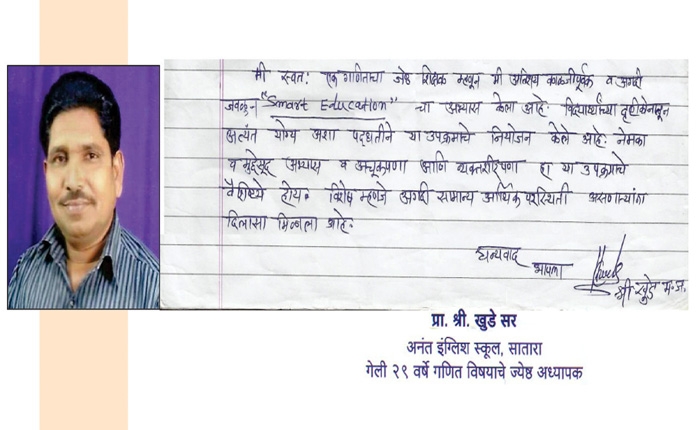 मी स्वतः एक गणिताचा ज्येष्ठ शिक्षक म्हणून मी अतिशय काळजीपूर्वक व अगदी
जवळून "Smart Education" चा अभ्यास केला आहे. विद्यार्थ्यांच्या दृष्टीकोनातून
अत्यंत योग्य अशा पद्धतीने या उपक्रमाचे नियोजन केले आहे. नेमका
व मुद्देसूद अभ्यास व अचूकपणा आणि हा या उपक्रमाचे
वैशिष्ट्ये होय. विशेष म्हणजे अगदी सामान्य आर्थिक परिस्थिती असणाऱ्यांना
दिलासा मिळाला आहे.
धन्यवाद
आपला
श्री खुडे म. ज.
प्रा. श्री. खुडे सर
अनंत इंग्लिश स्कूल, सातारा
गेली २९ वर्षे गणित विषयाचे ज्येष्ठ अध्यापक